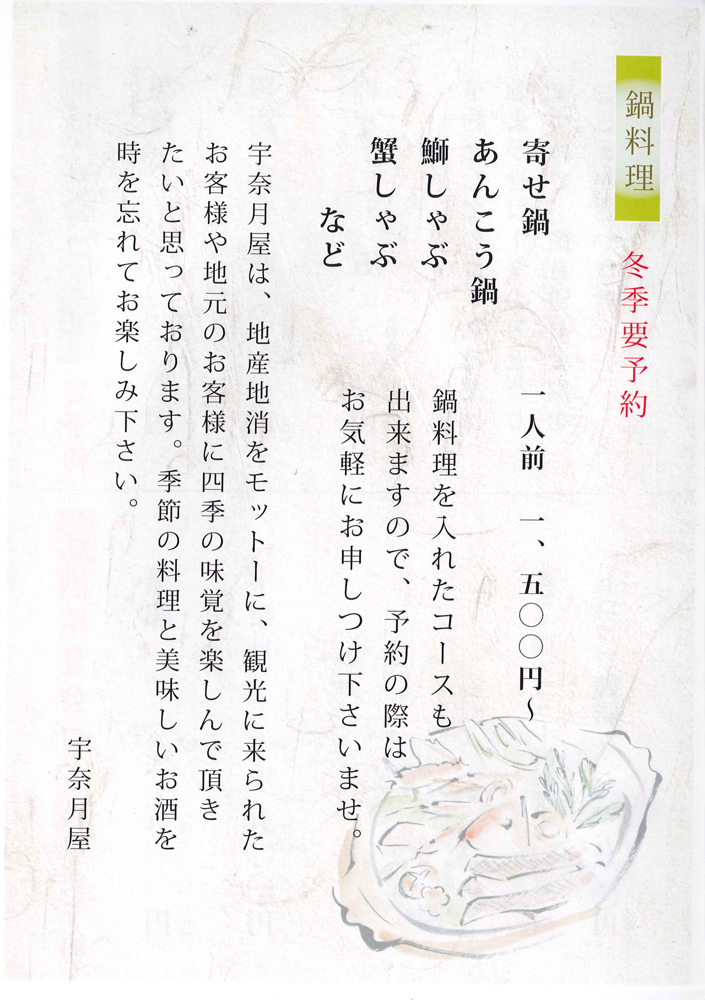 鍋料理
冬季要予約
寄せ鍋 一人前 一、五〇〇円～
あんこう鍋
鰤しゃぶ
蟹しゃぶ
など
鍋料理を入れたコースも
出来ますので、予約の際は
お気軽にお申しつけ下さいませ。
宇奈月屋は、地産地消をモットーに、観光に来られた
お客様や地元のお客様に四季の味覚を楽しんで頂き
たいと思っております。季節の料理と美味しいお酒を
時を忘れてお楽しみ下さい。
宇奈月屋